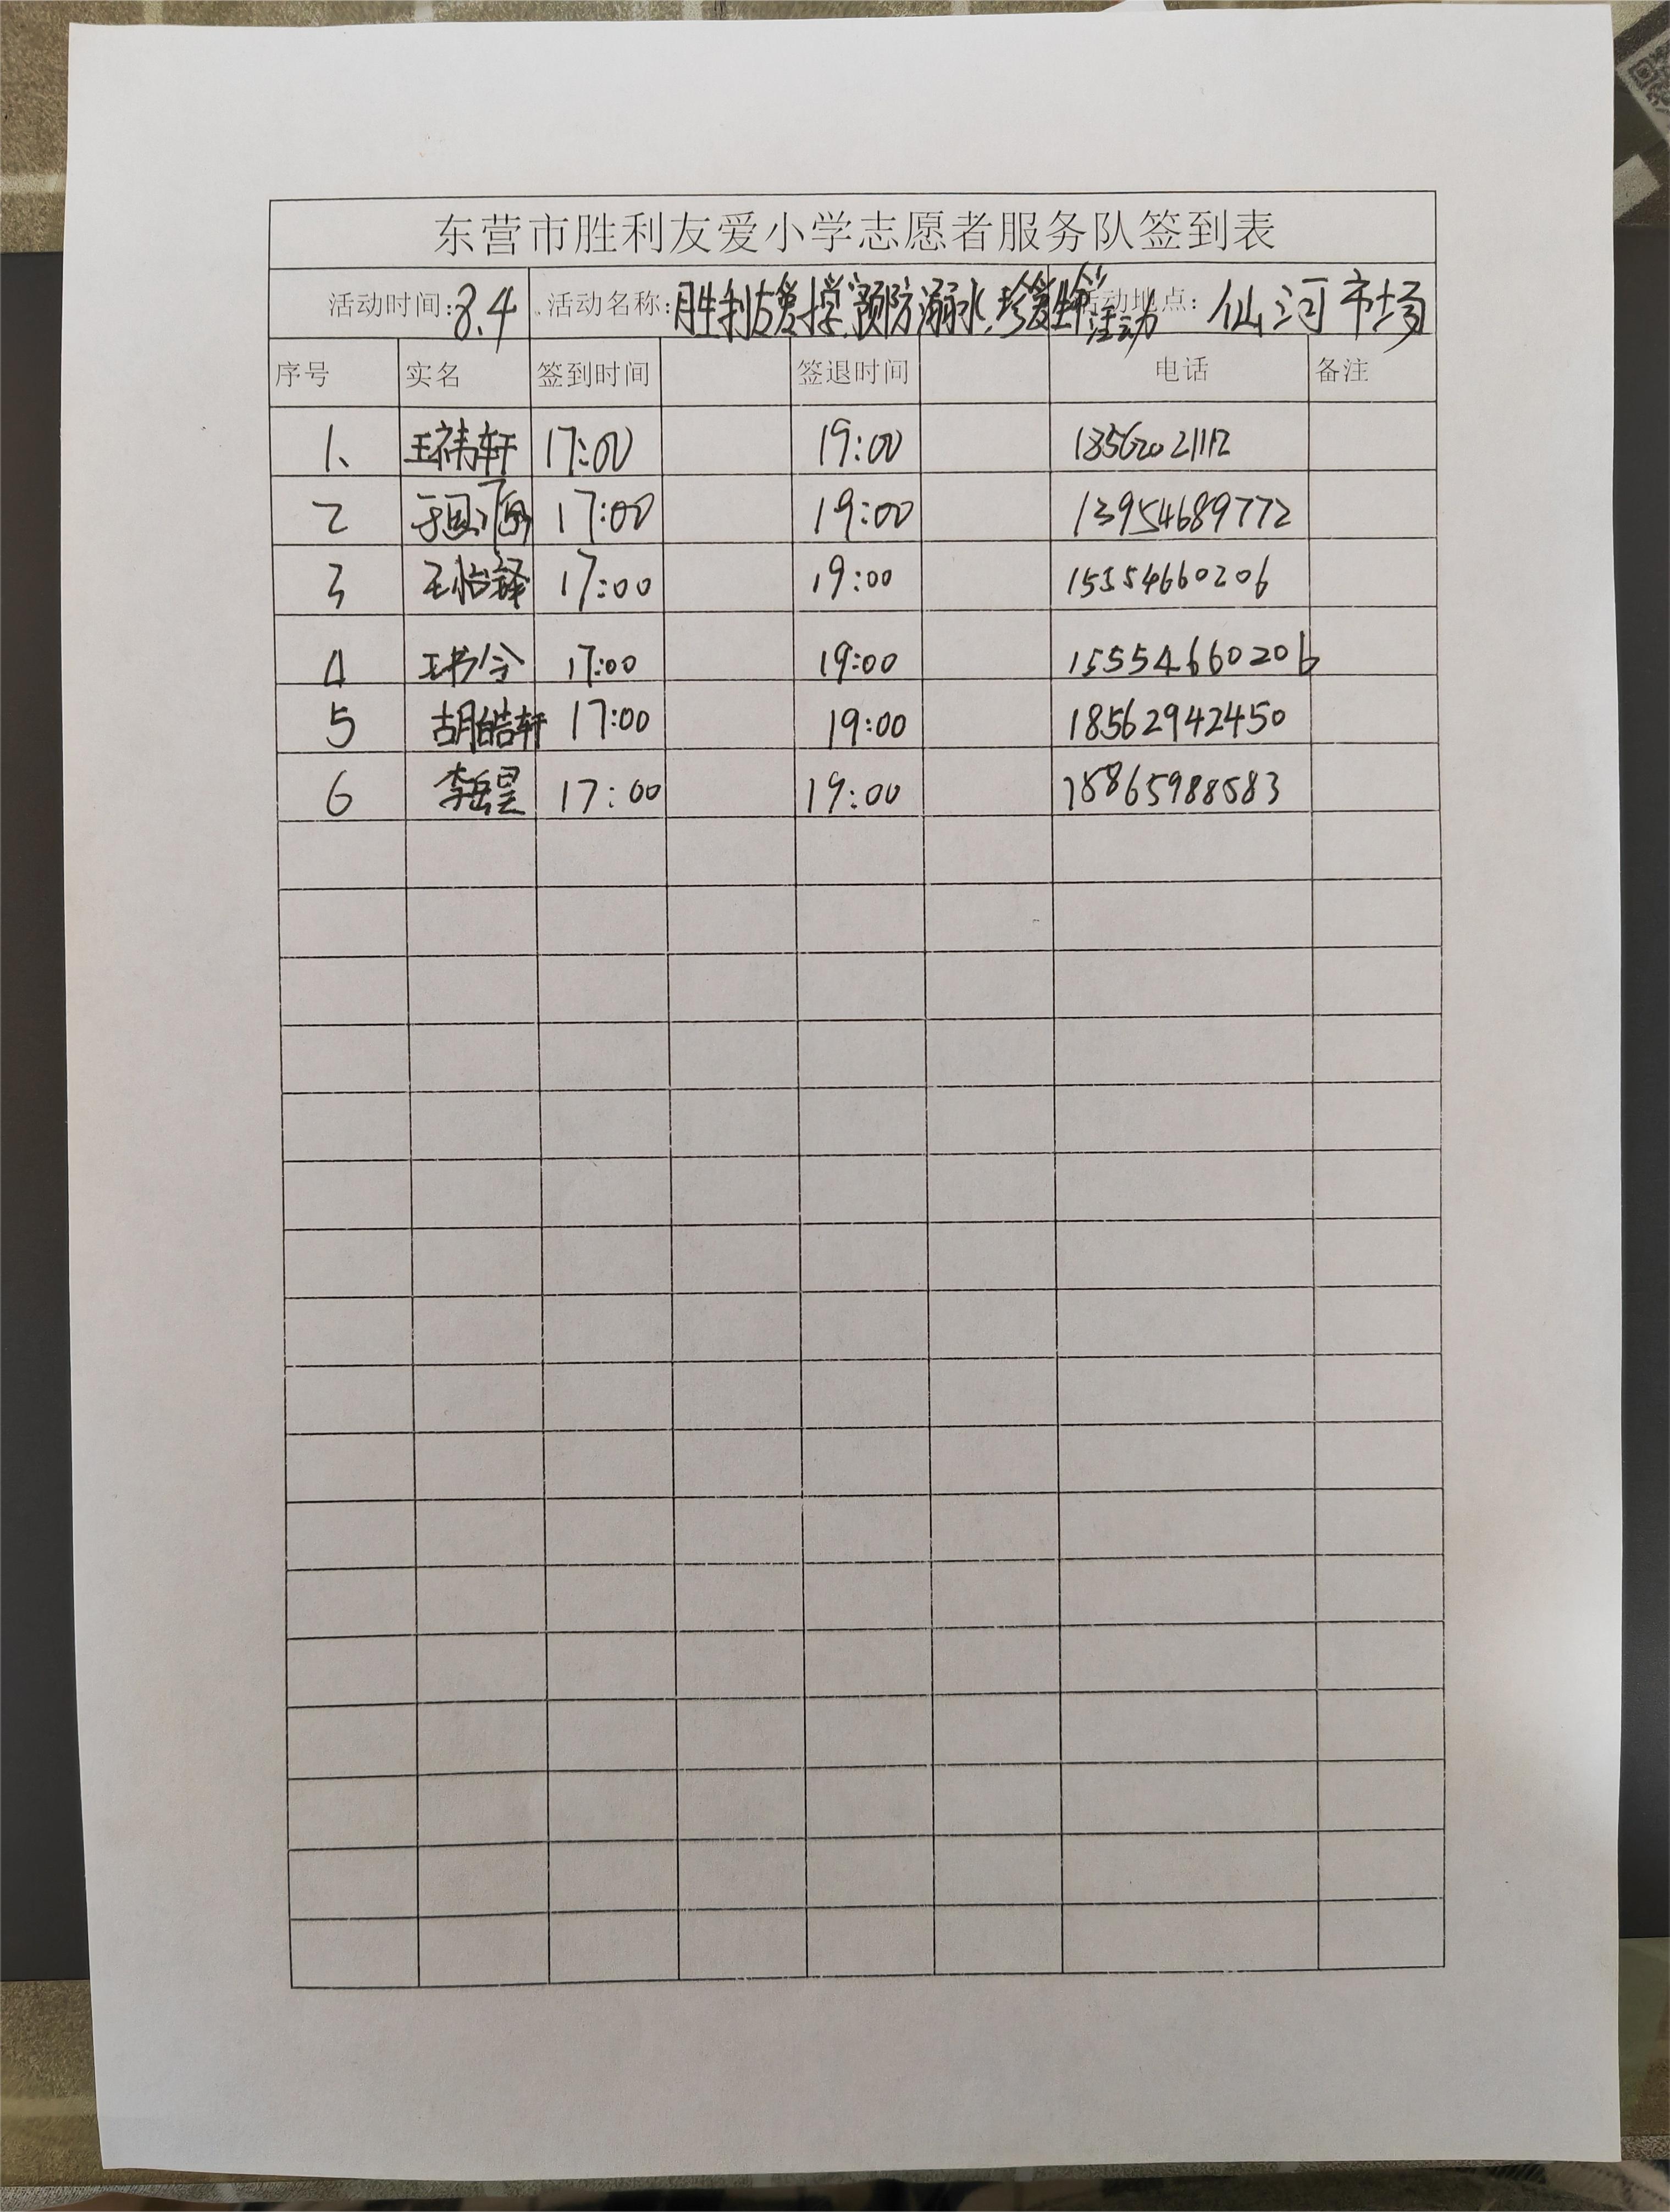 东营市胜利友爱小学志愿者服务队签到表
活动时间:8.4 活动名称:胜利友爱小学“预防溺水,珍爱生命”活动 活动地点: 仙河市场
序号 实名 签到时间 签退时间 电话 备注
1、 王祎轩 17:00 19:00 18562021112
2 17:00 19:00 13954689772
3 王怡铎 17:00 19:00 15554660206
4 王书兮 17:00 19:00 15554660206
5 胡皓轩 17:00 19:00 18562942450
6 李岳昊 17:00 19:00 15865988583